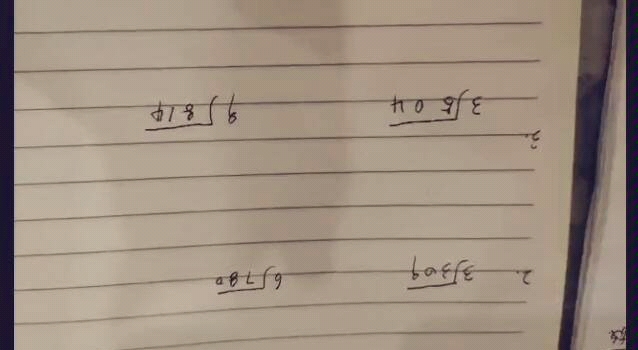 2. 3⟌309 6⟌780
3. 3⟌504 9⟌814